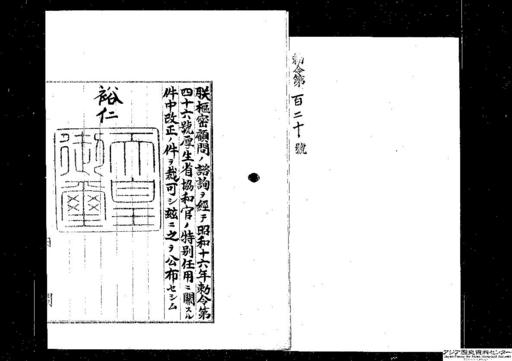 勅令第百二十號
朕樞密顧問ノ諮詢ヲ經テ昭和十六年勅令第
四十六號厚生省協和官ノ特別任用ニ關スル
件中改正ノ件ヲ裁可シ玆ニ之ヲ公布セシム
裕仁
天皇
御璽
アジア歴史資料センター